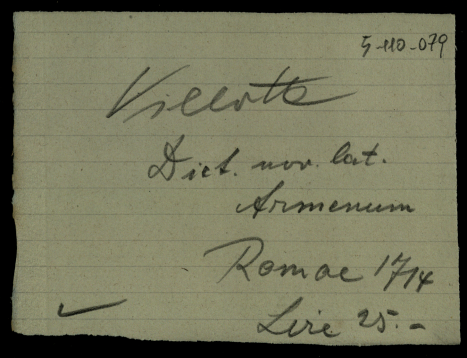 5-110-079
Villotte
Dict. nov. lat.
Armenum
Romae 1714
Lire 25.-